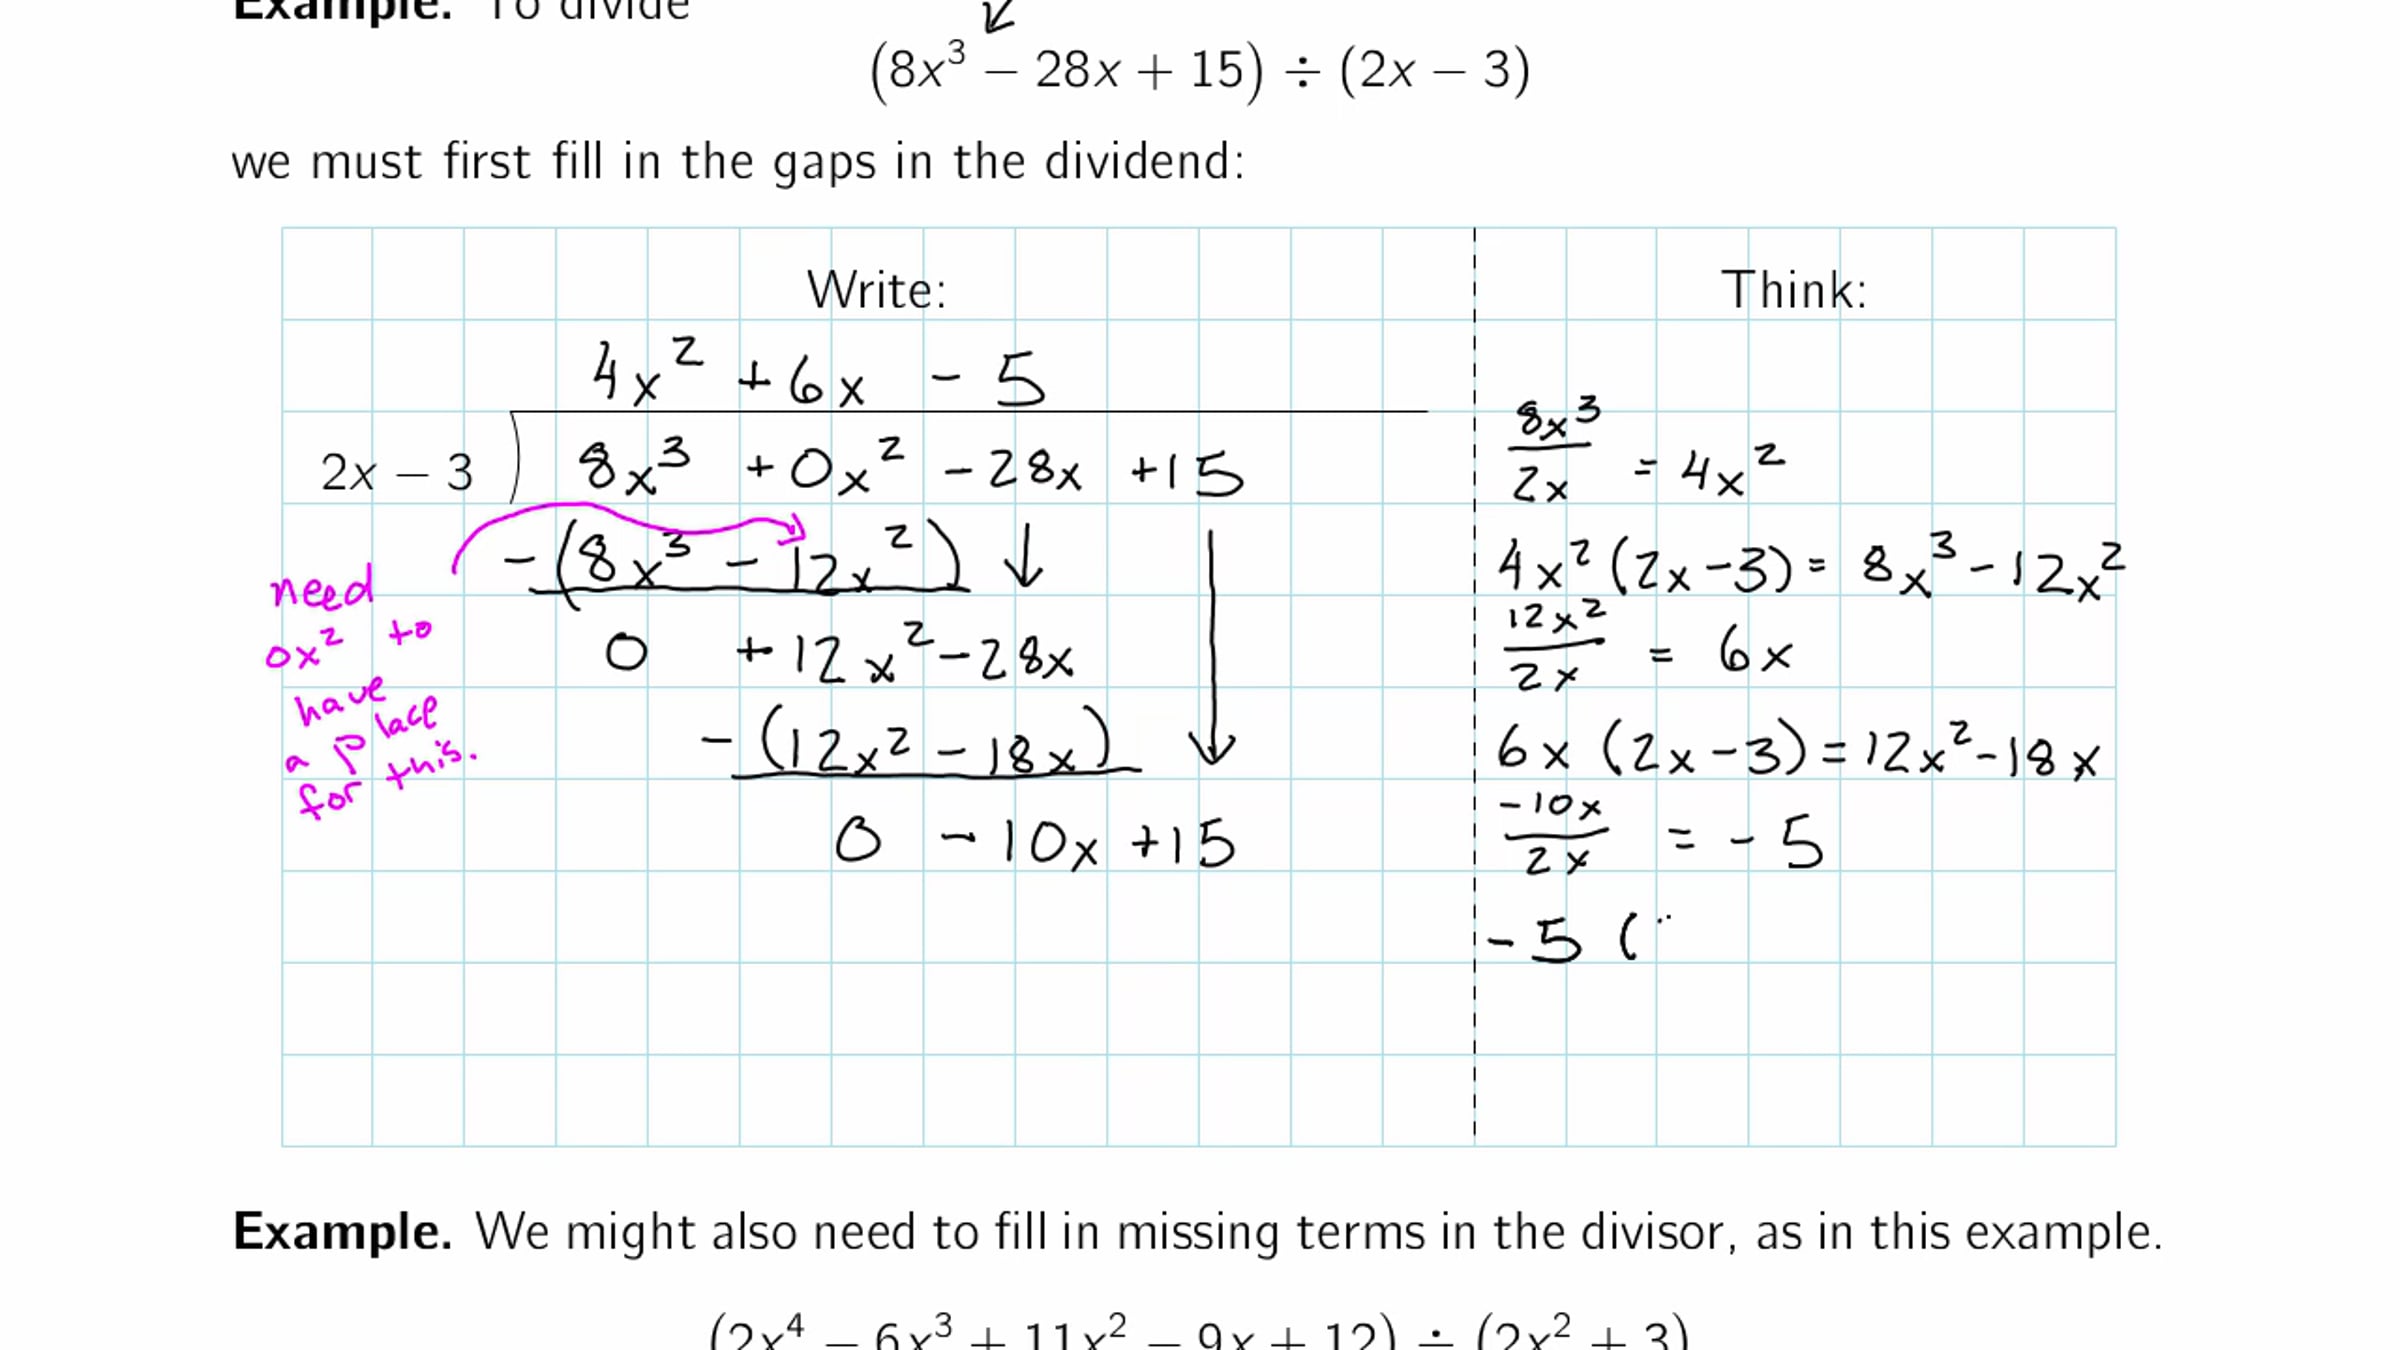 Example. To divide
(8x³ − 28x + 15) ÷ (2x − 3)
we must first fill in the gaps in the dividend:
Write:
4x² + 6x - 5
2x − 3 ) 8x³ + 0x² - 28x + 15
-(8x³ - 12x²)
0 + 12x² - 28x
-(12x² - 18x)
0 - 10x + 15
need
0x² to
have
a place
for this.
Think:
8x³/2x = 4x²
4x²(2x-3) = 8x³ - 12x²
12x²/2x = 6x
6x(2x-3) = 12x² - 18x
-10x/2x = -5
-5(
Example. We might also need to fill in missing terms in the divisor, as in this example.
(2x⁴ − 6x³ + 11x² − 9x + 12) ÷ (2x² + 3)